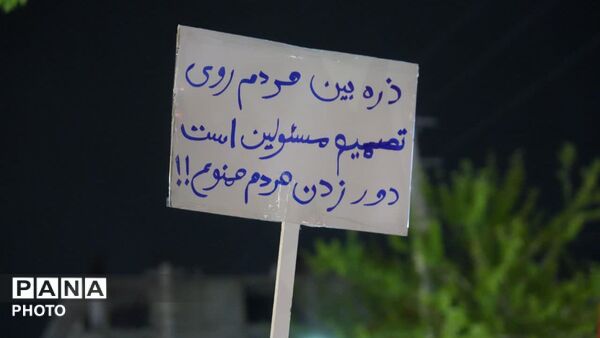 ذره بین مردم روی
تصمیم مسئولین است
دور زدن مردم ممنوع!!
PANA
PHOTO